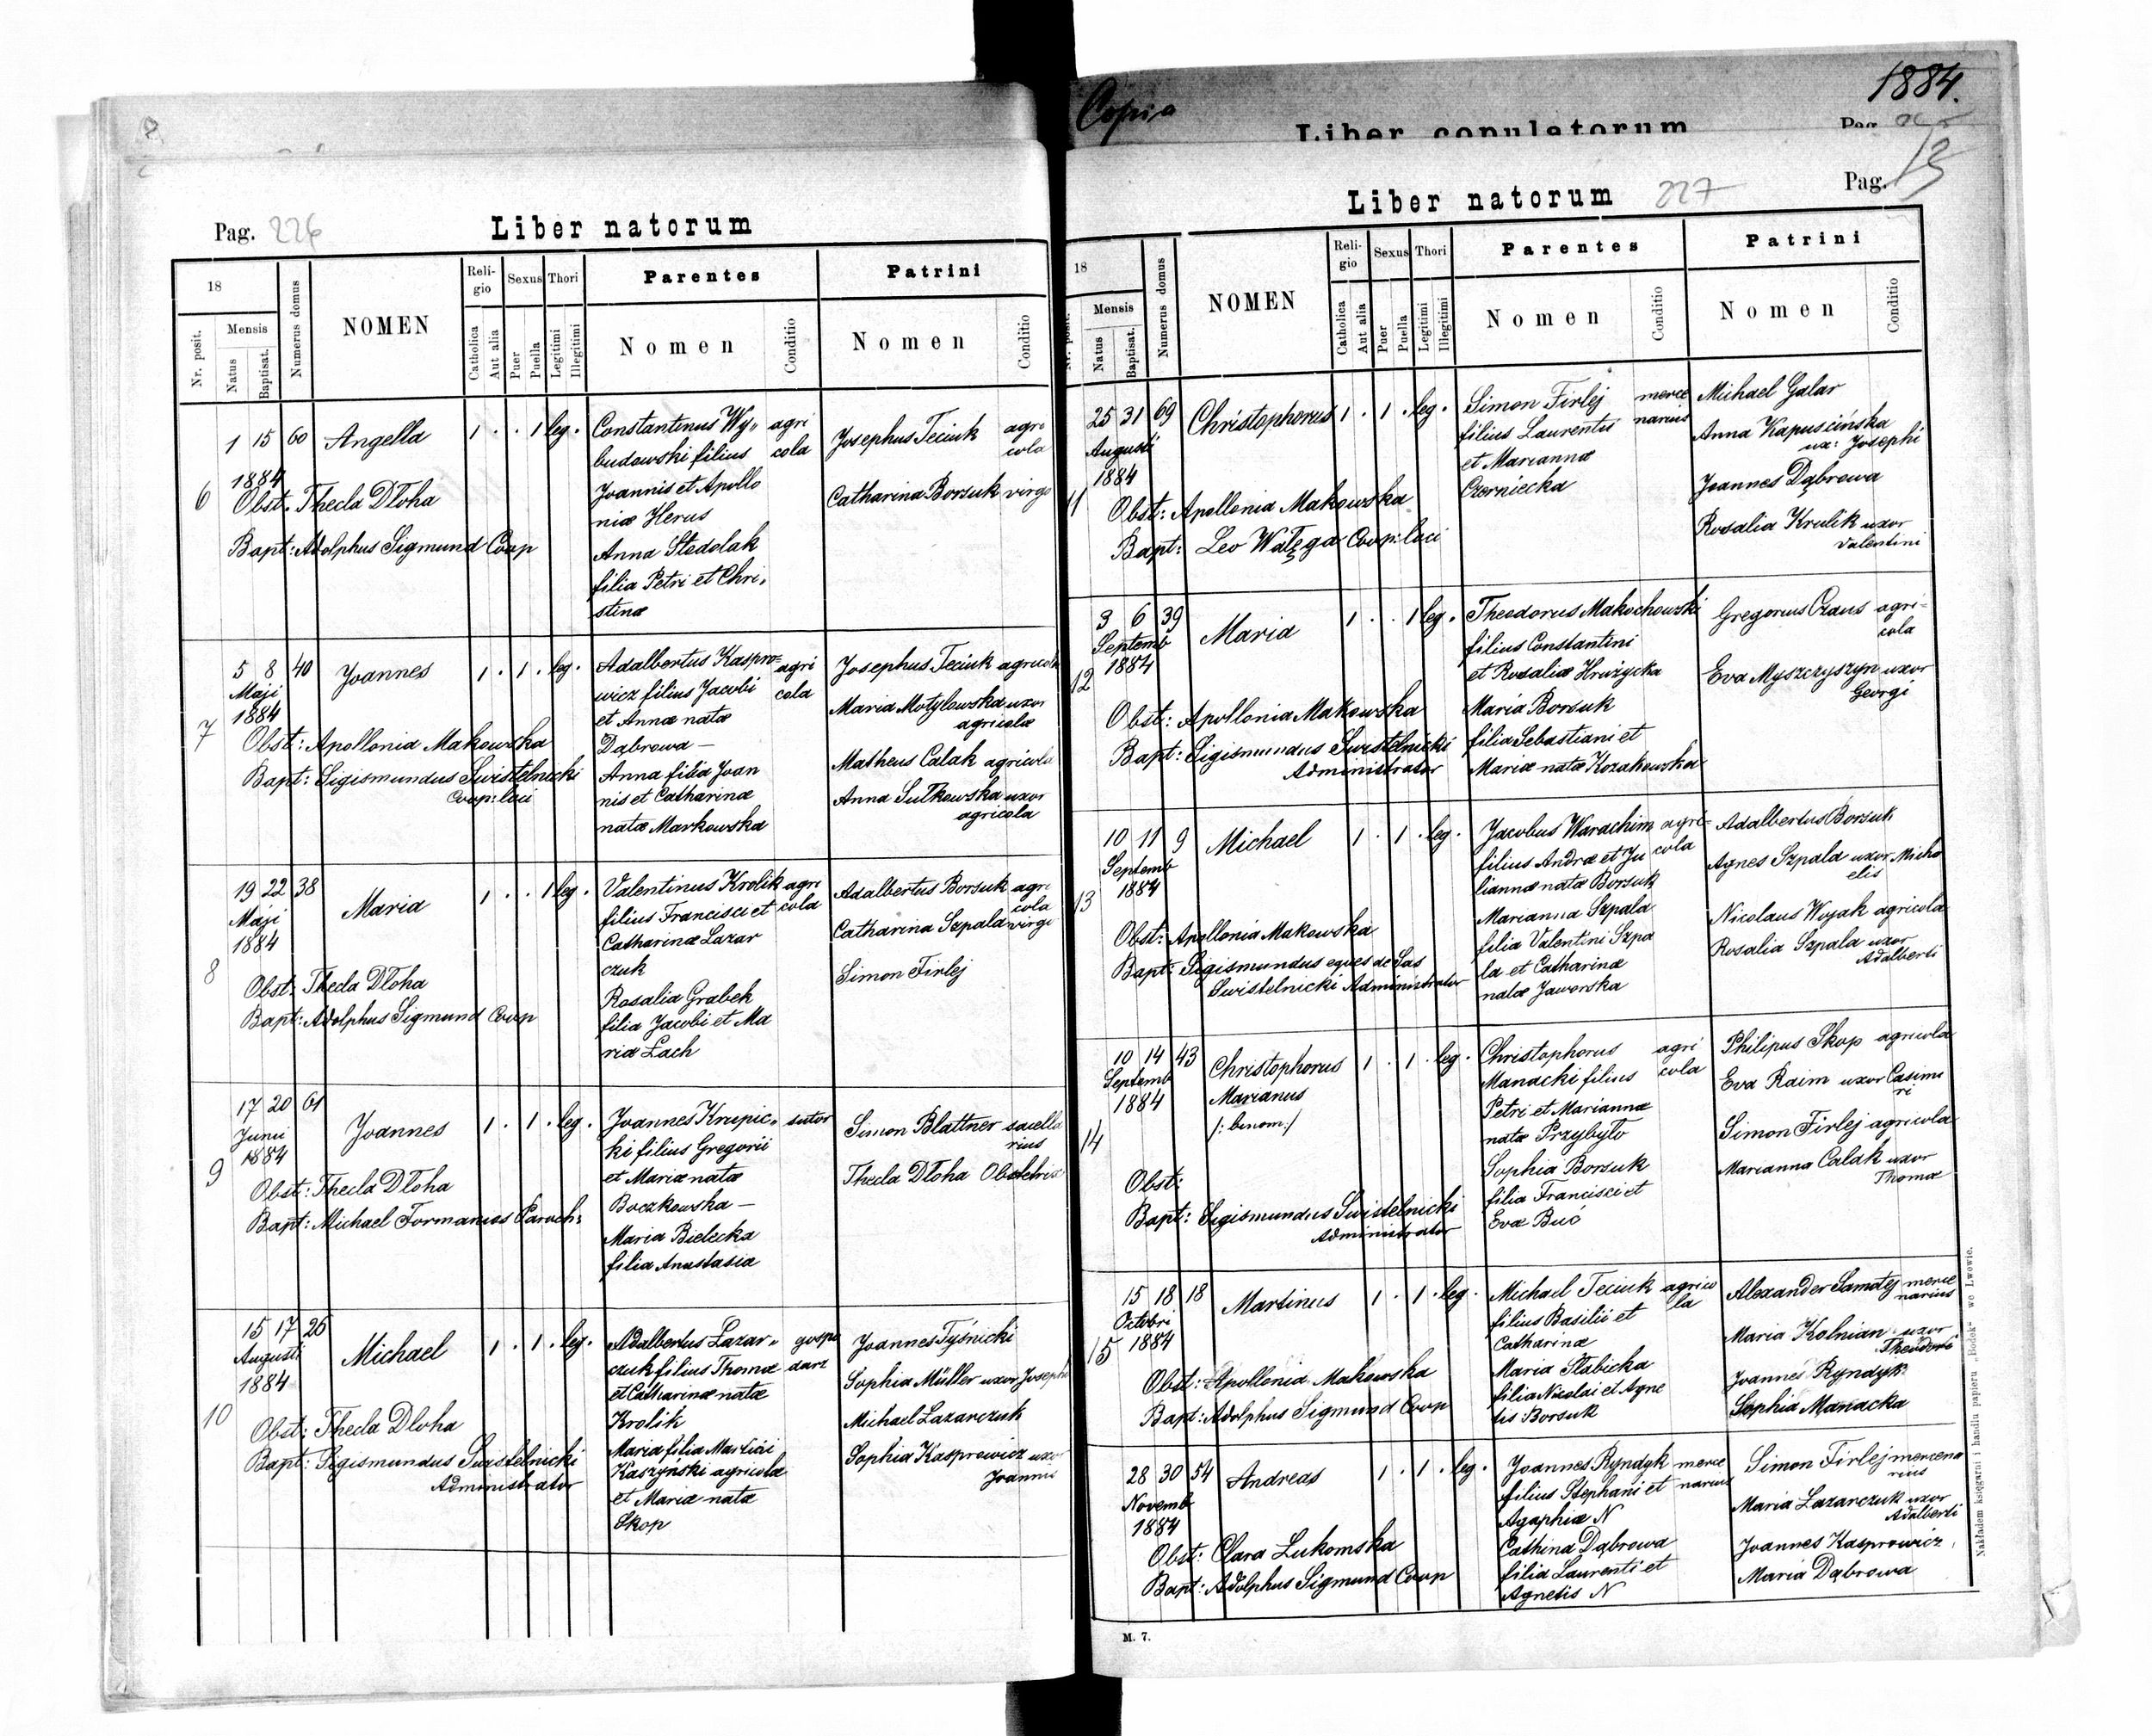 Copia
1884.
Liber copulatorum
Pag.
Pag. 226
Liber natorum
18
Mensis
Nr. posit.
Natus
Baptisat.
Numerus domus
NOMEN
Reli-
gio
Sexus
Thori
Catholica
Aut alia
Puer
Puella
Legitimi
Illegitimi
Parentes
Nomen
Conditio
Patrini
Nomen
Conditio
6
1 15 60 Angella 1 . . 1 leg.
1884
Obst: Thecla Dłoha
Bapt: Adolphus Sigmund Coop
Constantinus Wy„ agri
budowski filius cola
Joannis et Apollo
niæ Herus
Anna Stedolak
filia Petri et Chri„
stinæ
Josephus Teciuk agri
cola
Catharina Borsuk virgo
7
5 8 40 Joannes 1 . 1 . leg.
Maji
1884
Obst: Apollonia Makowska
Bapt: Sigismundus Swistelnicki
Coop: loci
Adalbertus Kaspro= agri
wicz filius Jacobi cola
et Annæ natæ
Dąbrowa —
Anna filia Joan
nis et Catharinæ
natæ Markowska
Josephus Teciuk agricola
Maria Motylowska uxor
agricolæ
Matheus Calak agricola
Anna Sułkowska uxor
agricola
8
19 22 38 Maria 1 . . 1 leg.
Maji
1884
Obst: Thecla Dłoha
Bapt: Adolphus Sigmund Coop
Valentinus Krolik agri
filius Francisci et cola
Catharinæ Lazar
czuk
Rosalia Grabek
filia Jacobi et Ma
riæ Lach
Adalbertus Borsuk agri
cola
Catharina Szpala virgo
Simon Firlej
9
17 20 61 Joannes 1 . 1 . leg.
Junii
1884
Obst: Thecla Dłoha
Bapt: Michael Formanios Paroch:
Joannes Krupic„ sutor
ki filius Gregorii
et Mariæ natæ
Boczkowska —
Maria Bielecka
filia Anastasiæ
Simon Blattner saella
rius
Thecla Dłoha Obstetrix
10
15 17 26 Michael 1 . 1 . leg.
Augusti
1884
Obst: Thecla Dłoha
Bapt: Sigismundus Swistelnicki
Administrator
Adalbertus Lazar„ gospo
czuk filius Thomæ darz
et Catharinæ natæ
Krolik
Maria filia Martini
Kaszyński agricola
et Mariæ natæ
Skop
Joannes Tyśnicki
Sophia Müller uxor Josephi
Michael Lazarczuk
Sophia Kasprowicz uxor
Joannis
Liber natorum 227
Pag.
18
Mensis
Nr. posit.
Natus
Baptisat.
Numerus domus
NOMEN
Reli-
gio
Sexus
Thori
Catholica
Aut alia
Puer
Puella
Legitimi
Illegitimi
Parentes
Nomen
Conditio
Patrini
Nomen
Conditio
11
25 31 69 Christophorus 1 . 1 . leg.
Augusti
1884
Obst: Apollonia Makowska
Bapt: Leo Wałęga Coop: loci
Simon Firlej merce
filius Laurentii narius
et Mariannæ
Czerniecka
Michael Galar
Anna Kapuscińska
ux: Josephi
Joannes Dąbrowa
Rosalia Krulik uxor
Valentini
12
3 6 39 Maria 1 . . 1 leg.
Septemb
1884
Obst: Apollonia Makowska
Bapt: Sigismundus Swistelnicki
Administrator
Theodorus Makochowski
filius Constantini
et Rosaliæ Hrużycka
Maria Borsuk
filia Sebastiani et
Mariæ natæ Kozakowska
Gregorius Czaus agri=
cola
Eva Myszczyszyn uxor
Georgi
13
10 11 9 Michael 1 . 1 . leg.
Septemb
1884
Obst: Apollonia Makowska
Bapt: Sigismundus eques de Sas
Swistelnicki Administrator
Jacobus Warachim agri=
filius Andræ et Ju cola
liannæ natæ Borsuk
Marianna Szpala
filia Valentini Szpa
la et Catharinæ
natæ Jaworska
Adalbertus Borsuk
Agnes Szpala uxor Micha
elis
Nicolaus Wojak agricola
Rosalia Szpala uxor
Adalberti
14
10 14 43 Christophorus 1 . 1 . leg.
Septemb Marianus
1884 /: binom:/
Obst:
Bapt: Sigismundus Swistelnicki
Administrator
Christophorus agri
Manacki filius cola
Petri et Mariannæ
natæ Przybyło
Sophia Borsuk
filia Francisci et
Evæ Buć
Philipus Skop agricola
Eva Raim uxor Casimi
ri
Simon Firlej agricola
Marianna Calak uxor
Thomæ
15
15 18 18 Martinus 1 . 1 . leg.
Octobri
1884
Obst: Apollonia Makowska
Bapt: Adolphus Sigmund Coop
Michael Teciuk agrico
filius Basilii et la
Catharinæ
Maria Stabicka
filia Nicolai et Agne
tis Borsuk
Alexander Samotej merce
narius
Maria Kolnian uxor
Theodori
Joannes Ryndyk
Sophia Manacka
28 30 54 Andreas 1 . 1 . leg.
Novemb
1884
Obst: Clara Lukomska
Bapt: Adolphus Sigmund Coop
Joannes Ryndyk merce
filius Stephani et narius
Agaphiæ N
Cathina Dąbrowa
filia Laurenti et
Agnetis N
Simon Firlej mercena
rius
Maria Lazarczuk uxor
Adalberti
Joannes Kasprowicz
Maria Dąbrowa
Nakładem księgarni i handlu papieru „Bodek" we Lwowie.
M. 7.